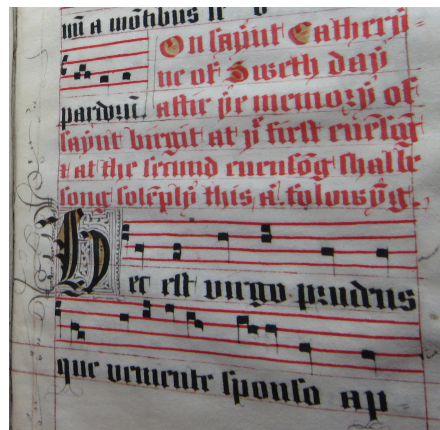 On saynt Catheryne
ne of Sweth day
parvuli. after þe memory of
saynt birgit at þe first euēsōg
& at the secund euensōg shalbe
song solēply this a. folowyg.
Hec est uirgo prudens
que ueniente sponso ap